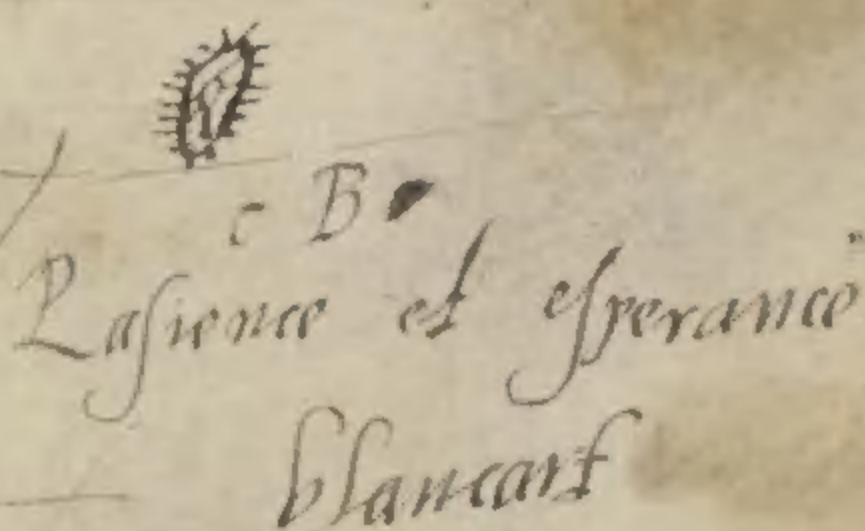 c B
Pasience et esperance
blancart